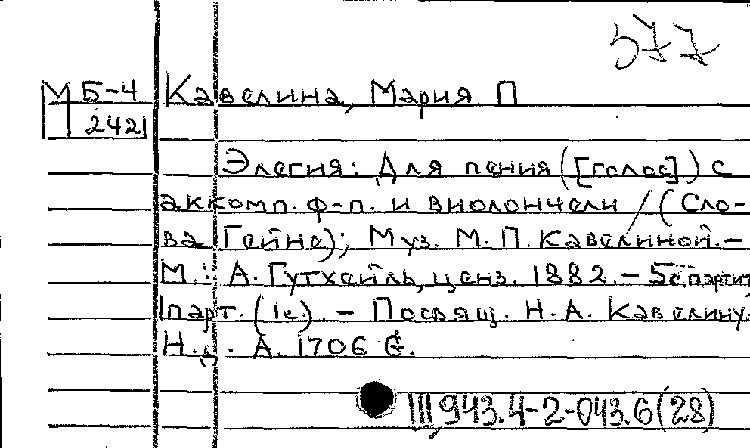 577
М Б-4 Кавелина, Мария П
2421
Элегия: Для пения ([голос]) с
аккомп. ф-п. и виолончели / (Сло-
ва Гейне); Муз. М. П. Кавелиной. –
М.: А. Гутхейль, ценз. 1882. – 5с. партит,
1парт. (1с.) – Посвящ. Н. А. Кавелину.
Н.д. А. 1706 G.
III, 943.4-2-043.6(28)